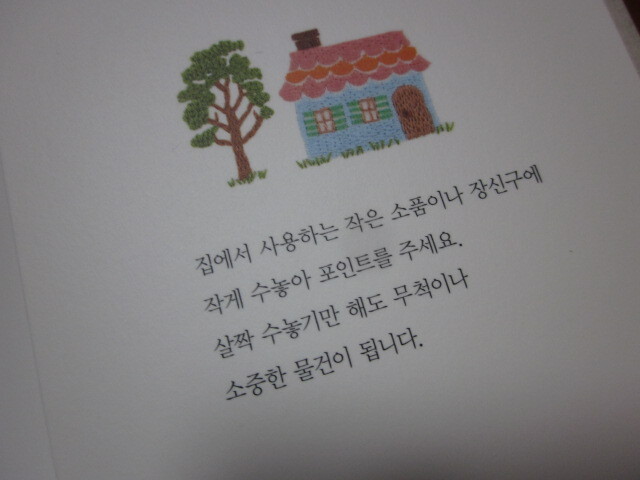 집에서 사용하는 작은 소품이나 장신구에
작게 수놓아 포인트를 주세요.
살짝 수놓기만 해도 무척이나
소중한 물건이 됩니다.